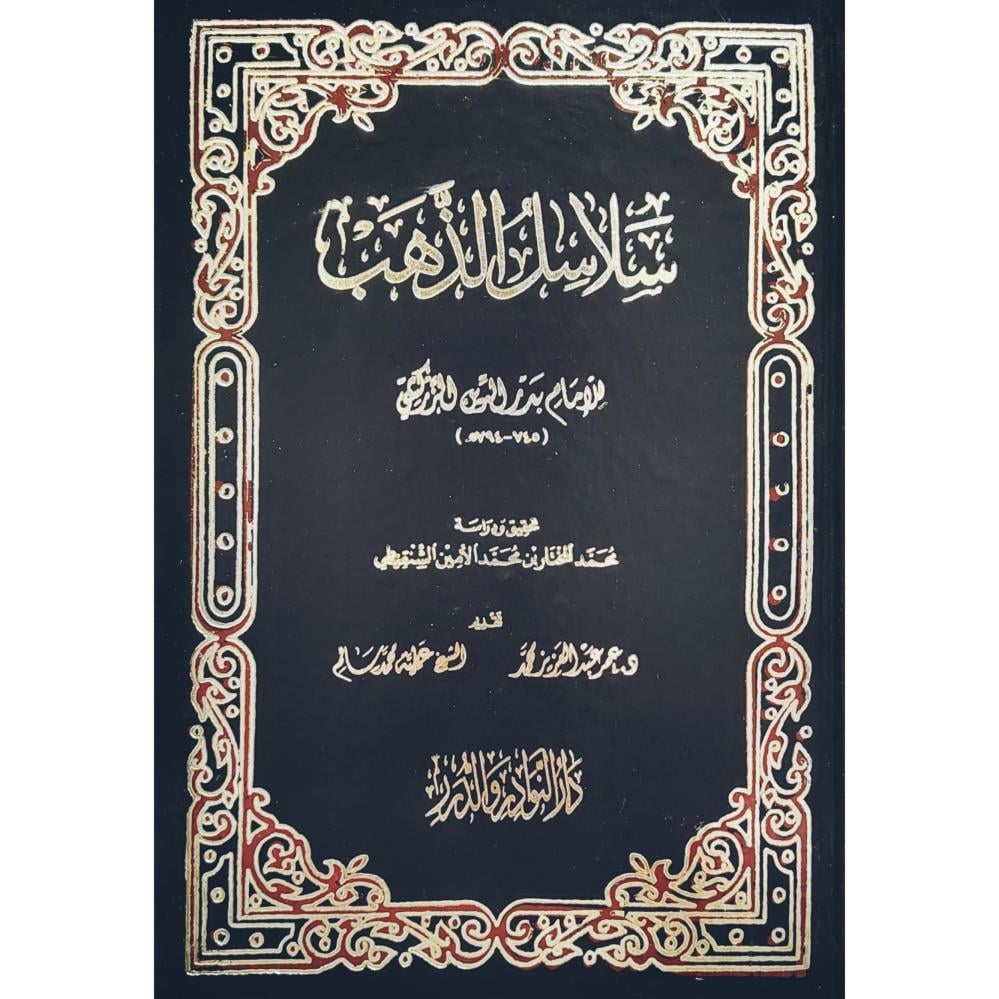 سَلَاسِلُ الذَّهَبِ
للإمام بدر الدين الزركشي
(٧٤٥-٧٩٤هـ)
تحقيق ودراسة
محمد المختار بن محمد الأمين الشنقيطي
تقديم
د. عمر عبد العزيز محمد الشيخ عطية محمد سالم
دار النوادر والدرر